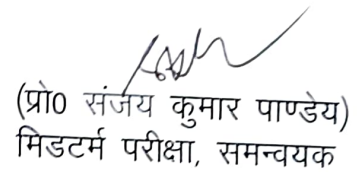 (प्रो0 संजय कुमार पाण्डेय)
मिडटर्म परीक्षा, समन्वयक